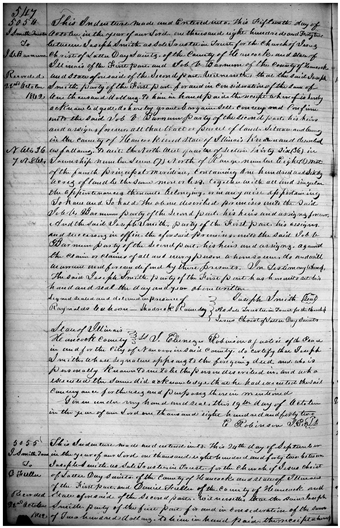 347
5054
This Indenture Made and Entered into This Fifteenth day of
October, in the year of our Lord, one thousand eight hundred and forty two
J. Smith
To
Between Joseph Smith as sole Trustee in Trust for the Church of Jesus
Christ of Latter Day Saints, of the County of Hancock and State of
Illinois of the First part and Job V. Barnum of the County of Hancock
and State aforesaid of the Second part. Witnesseth that the said Joseph
Recorded
October
1842
Smith, Party of the First Part for and in Consideration of the Sum of
One thousand dollars, to him in hand paid the receipt whereof is hereby
acknowledged, do hereby grant bargain Sell convey and Confirm
unto the said Job V. Barnum Party of the Second part his heirs
and assigns forever all that tract or parcel of land Situate and being
in the County of Hancock and State of Illinois Known and described
as follows, To wit: the North West quarter of Section Thirty Six (36) in
7 N. 8 W.
Township number Seven (7) North of Range number Eight West
of the fourth principal Meridian, containing One hundred and Sixty
Acres of land be the same more or less, together with all and singular
the appurtenances thereunto belonging, or in any wise appertaining
To have and To hold the above described premises unto the Said
Job V. Barnum party of the Second part, his heirs and assigns forever.
And the said Joseph Smith, Party of the First part his assigns,
Barnum party of the Second part, his heirs and assigns, against
the claim or claims of all and every person whomsoever do and will
Warrant and forever defend by these presents. In Testimony Whereof,
The said Joseph Smith, Party of the First part has hereunto set his
hand and seal the day and year above written
Signed Sealed and delivered in presence of
Joseph Smith Seal
Reynolds Cahoon
Jesus Christ of Latter Day Saints
State of Illinois
Hancock County
I, Ebenezer Robinson a Justice of the Peace
in and for the City of Nauvoo said County do certify that Joseph
Smith whose signature appears to the foregoing deed and who is
personally known to me to be the person described in, and who
executed the Same did acknowledge that he had executed the said
Conveyance for the uses and purposes therein mentioned
Given under my hand and seal this 15th day of October
in the year of our Lord one thousand and eight hundred and forty two
E. Robinson J.P. Seal
5055
J. Smith
To
This Indenture made and entered into This 24th day of September
in the year of our Lord one thousand eight hundred and forty two between
Joseph Smith as Sole Trustee in Trust, for the Church of Jesus Christ
of Latter Day Saints of the County of Hancock and State of Illinois
Recorded
October
1842
State aforesaid of the Second part. Witnesseth that the said Joseph
Smith party of the first part for and in consideration of the Sum